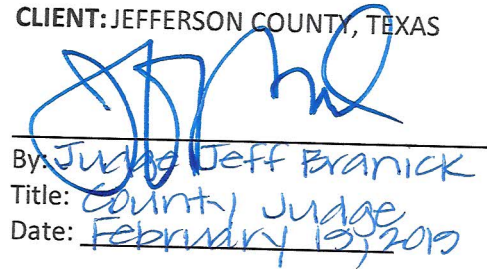 CLIENT: JEFFERSON COUNTY, TEXAS
By: Judge Jeff Branick
Title: County Judge
Date: February 19, 2019